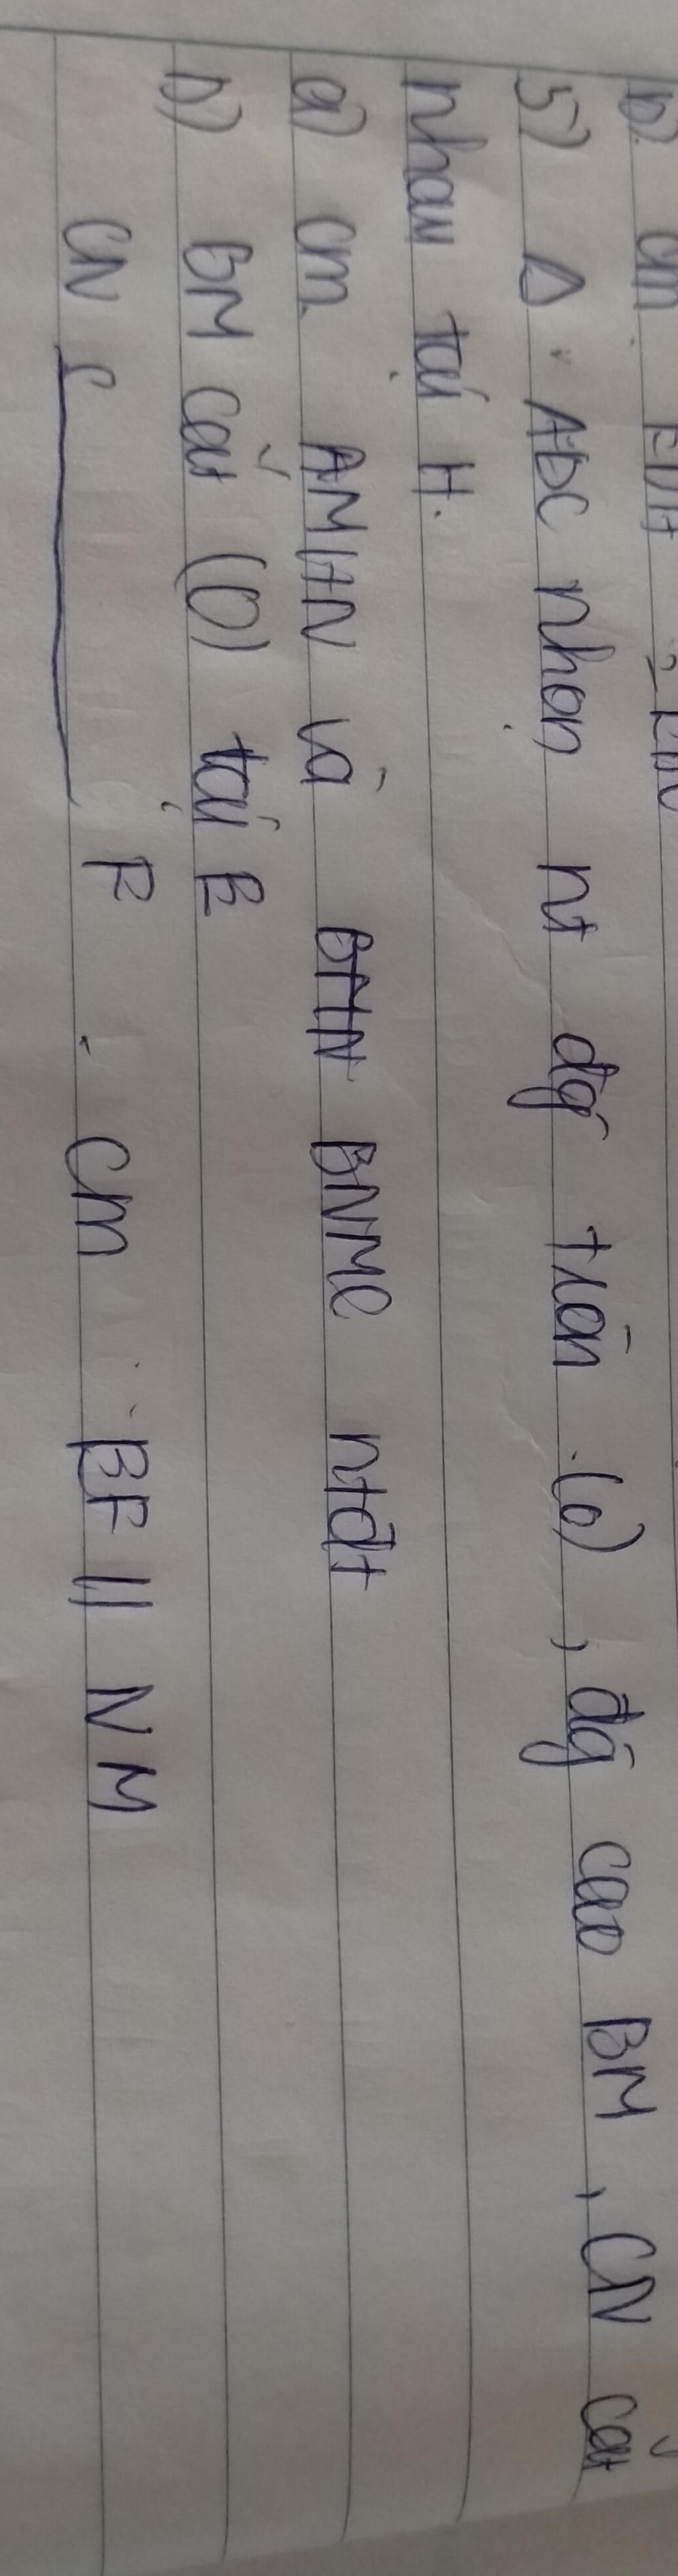 b). cm
5) Δ ABC nhọn nt đg tròn (O), đg cao BM, CN cắt
nhau tại H.
a) cm. AMHN và BNMC ntđt
b) BM cắt (O) tại E
CN F. cm BF // NM